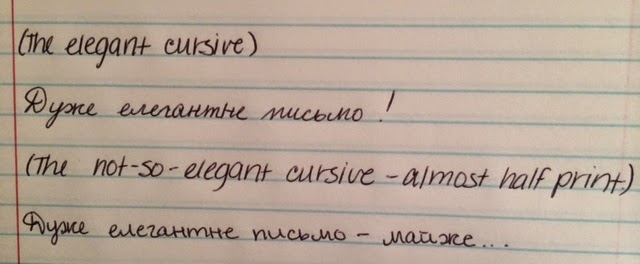 (The elegant cursive)
Дуже елегантне письмо!
(The not-so-elegant cursive - almost half print)
Дуже елегантне письмо - майже...